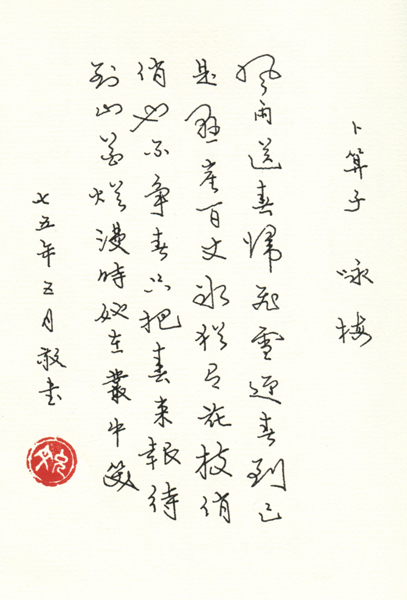 卜算子 咏梅
风雨送春归飞雪迎春到已
是悬崖百丈冰犹有花枝俏
俏也不争春只把春来报待
到山花烂漫时她在叢中笑
七五年五月敬书